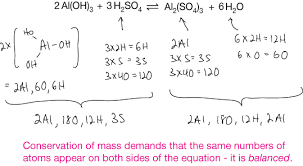 2Al(OH)₃ + 3H₂SO₄ ⇌ Al₂(SO₄)₃ + 6H₂O
2x ( HO Al-OH HO )
= 2Al, 6O, 6H
3x2H = 6H
3x S = 3S
3x4O = 12O
2Al
3x S = 3S
3x4O = 12O
6x2H = 12H
6x O = 6O
2Al, 18O, 12H, 3S
2Al, 18O, 12H, 2Al
Conservation of mass demands that the same numbers of
atoms appear on both sides of the equation - it is balanced.